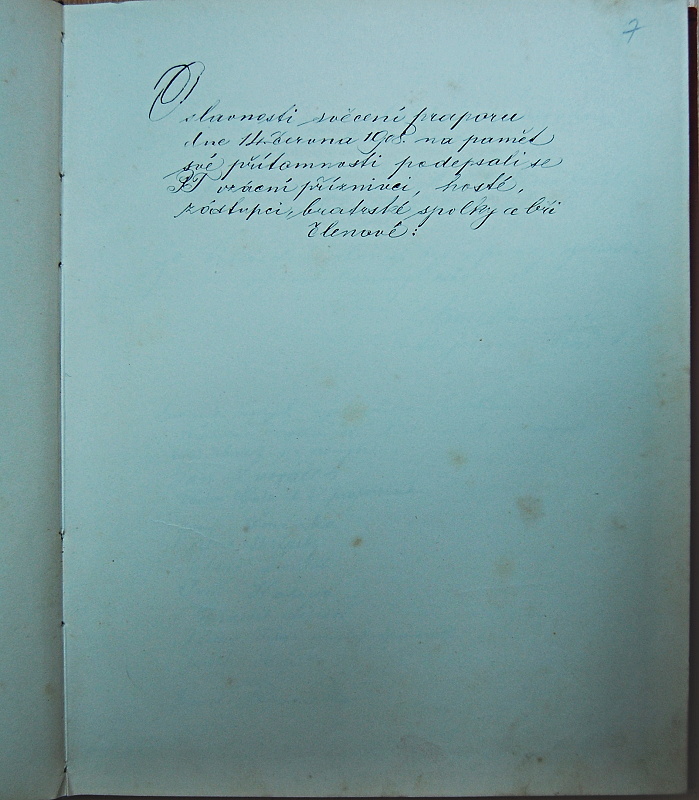 7
O slavnosti svěcení praporu
dne 14. června 1908. na paměť
své přítomnosti podepsali se
P.T. vzácní příznivci, hosté,
zástupci, bratrské spolky a bři
členové: